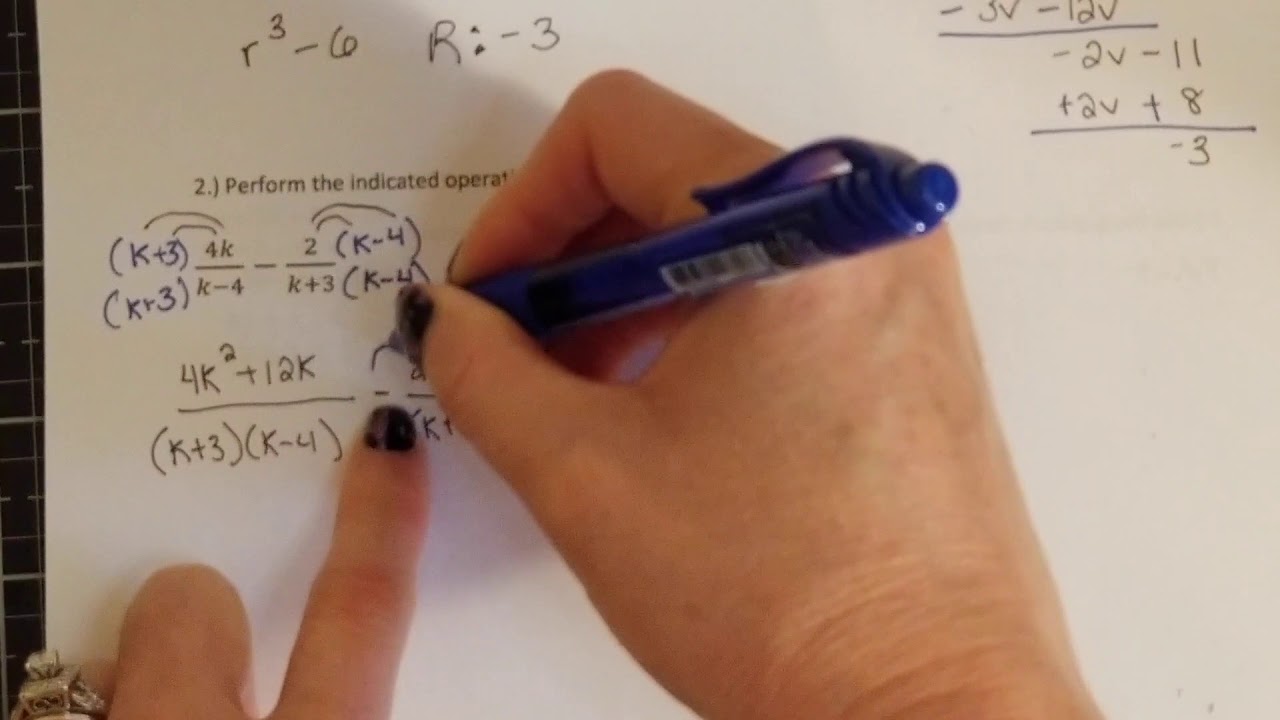 r³ - 6 R: -3
- 3v - 12v
- 2v - 11
+ 2v + 8
-3
2.) Perform the indicated
(K+3) 4k/k-4 - 2/k+3 (K-4)
(K+3) (K-4)
4K² + 12K -
(K+3)(K-4)